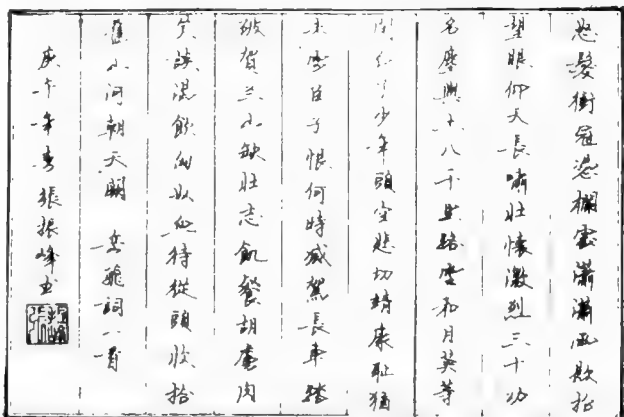 怒髮衝冠憑欄處瀟瀟雨歇抬
望眼仰天長嘯壯懷激烈三十功
名塵與土八千里路雲和月莫等
閒白了少年頭空悲切靖康恥猶
未雪臣子恨何時滅駕長車踏
破賀兰山缺壯志飢餐胡虜肉
笑談渴飲匈奴血待從頭收拾
舊山河朝天闕 岳飛詞一首
庚午年春張振峰书